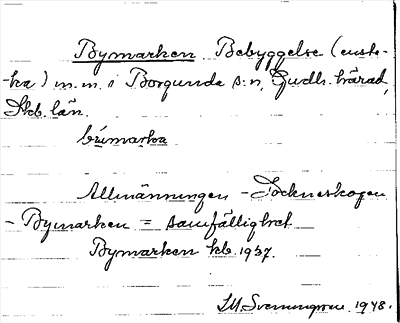 Bymarken Bebyggelse (enste-
-ka) m.m. i Borgunda s:n, Gudh. härad,
Skb. län.
býmarka
Allmänningen - Sockneskogen
- Bymarken = samfällighet
Bymarken kb. 1937.
S.M. Svenningson. 1948.